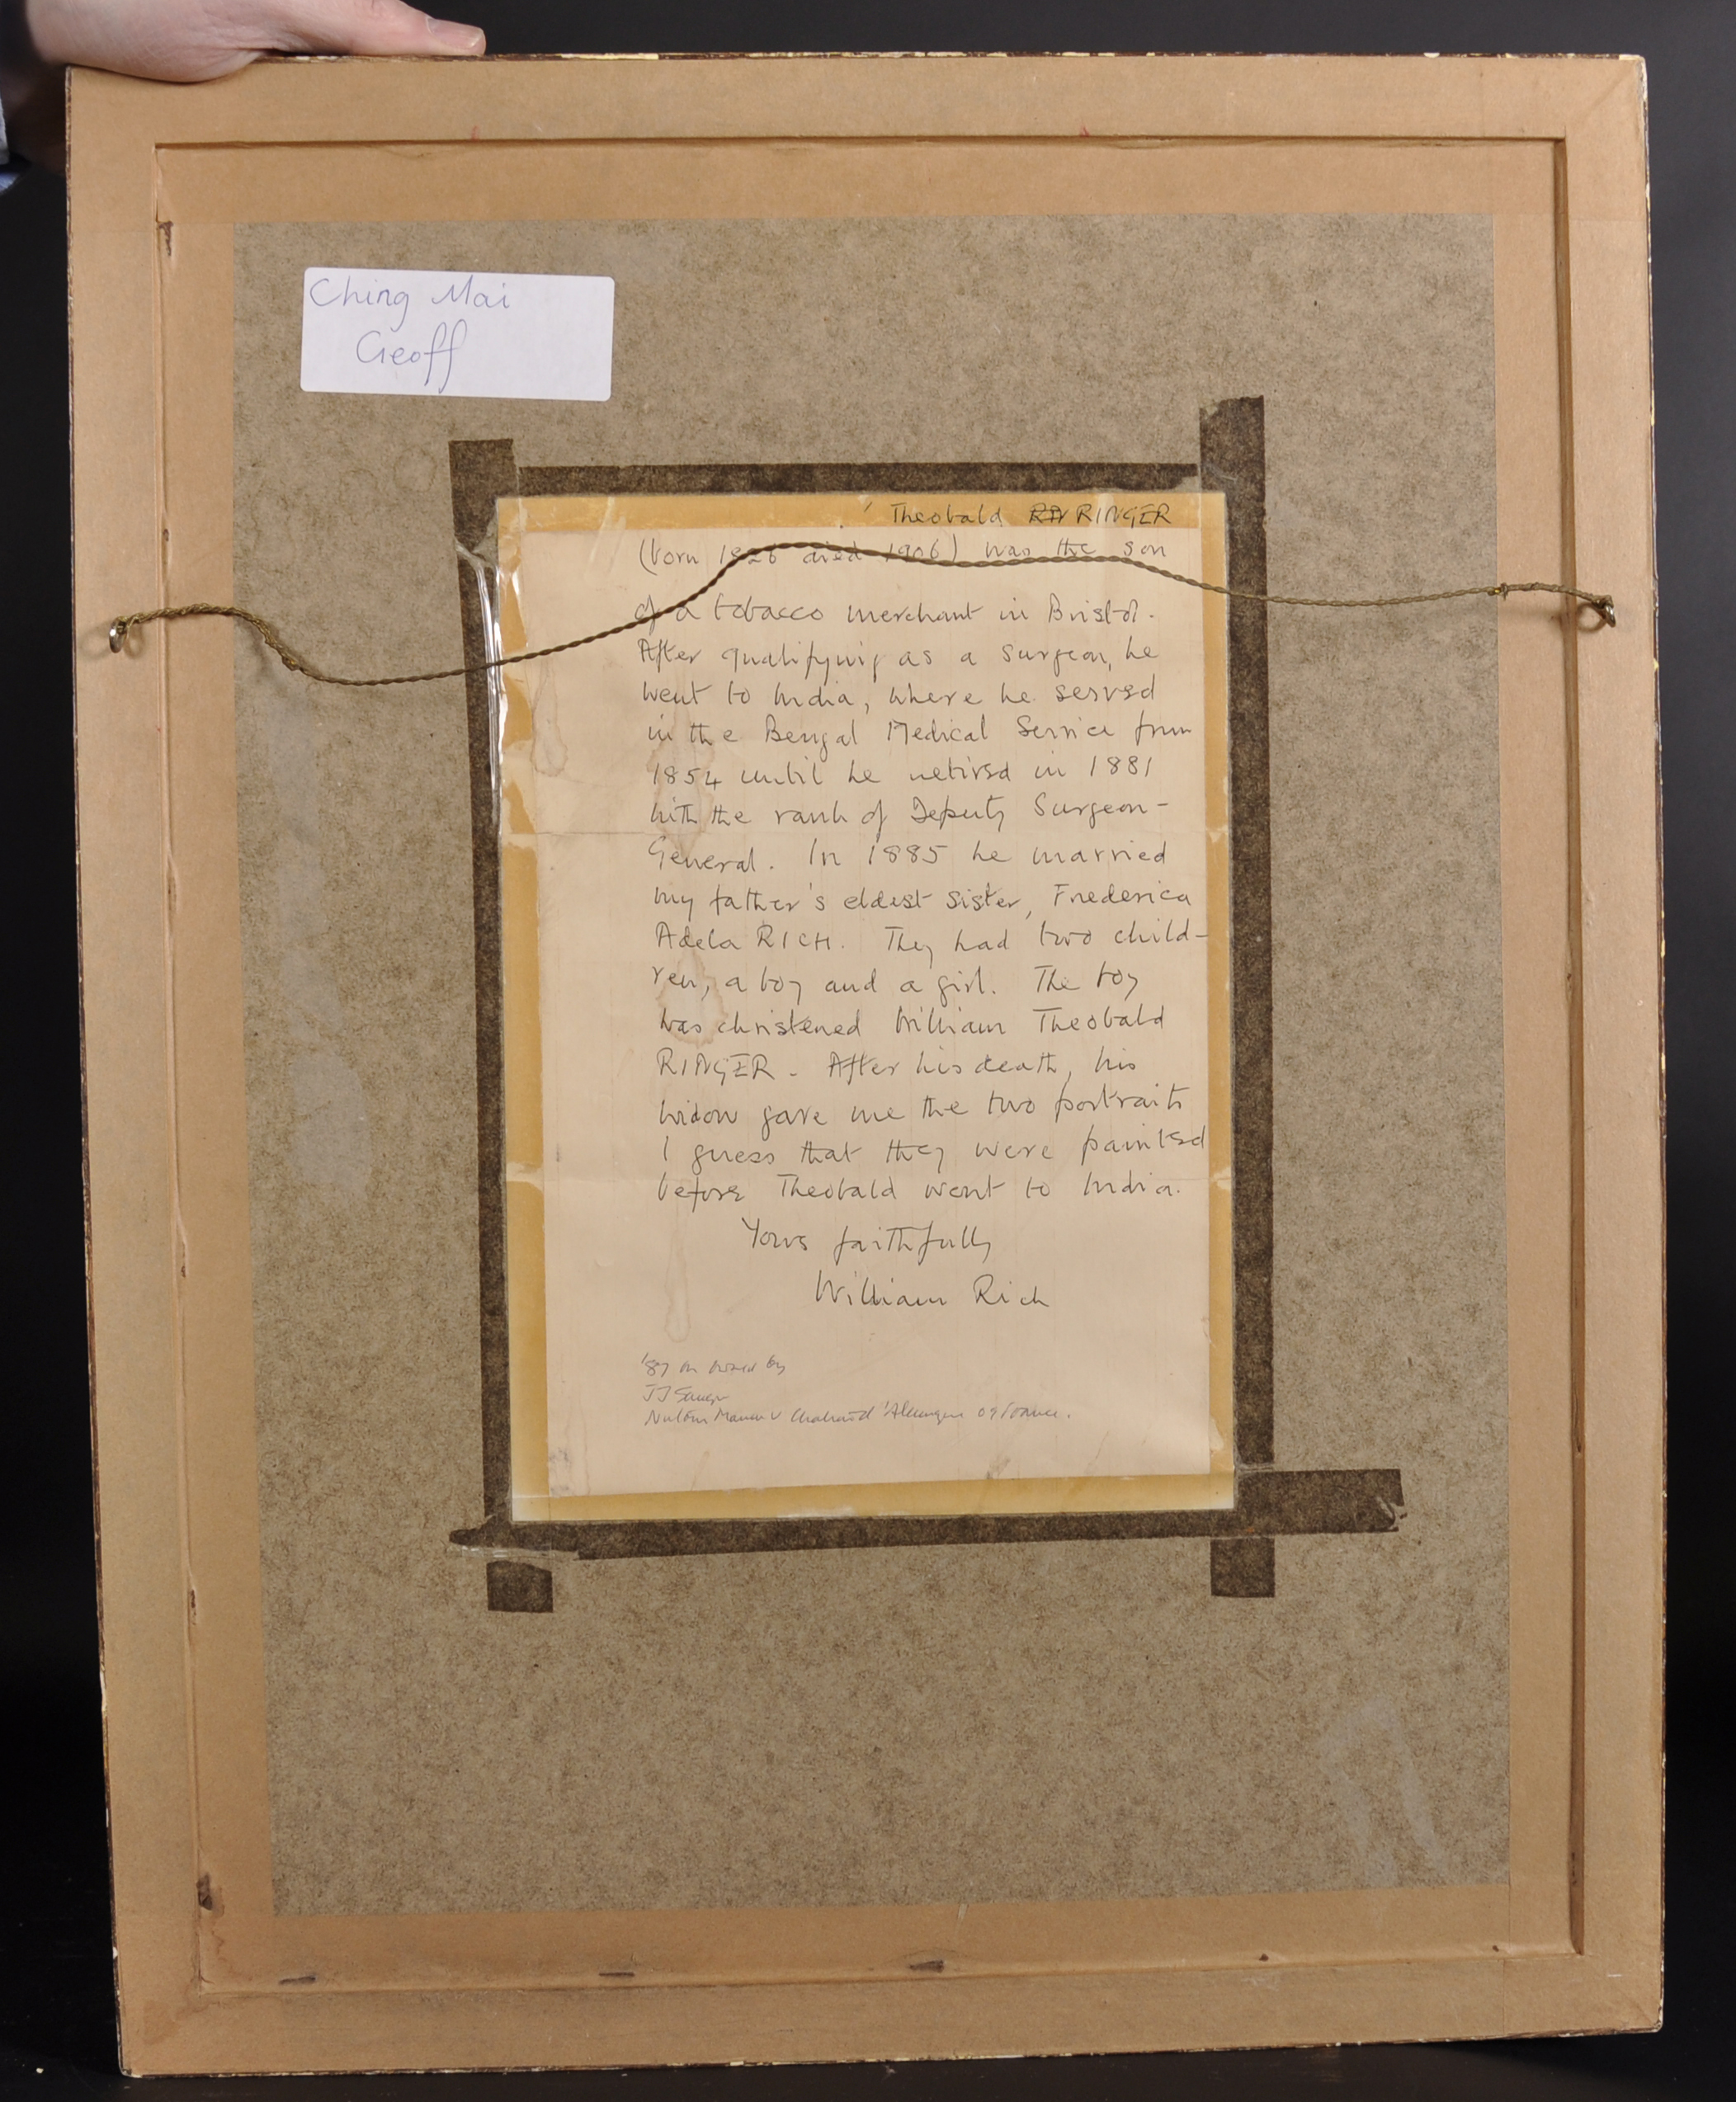 Ching Mai
Geoff
Theobald RINGER
(born 1826 died 1906) was the son
of a tobacco merchant in Bristol.
After qualifying as a surgeon, he
went to India, where he served
in the Bengal Medical Service from
1854 until he retired in 1881
with the rank of Deputy Surgeon-
General. In 1885 he married
my father's eldest sister, Frederica
Adela RICH. They had two child-
ren, a boy and a girl. The boy
was christened William Theobald
RINGER. After his death, his
widow gave me the two portraits
I guess that they were painted
before Theobald went to India.
Yours faithfully
William Rich
'87 owned by
JJ